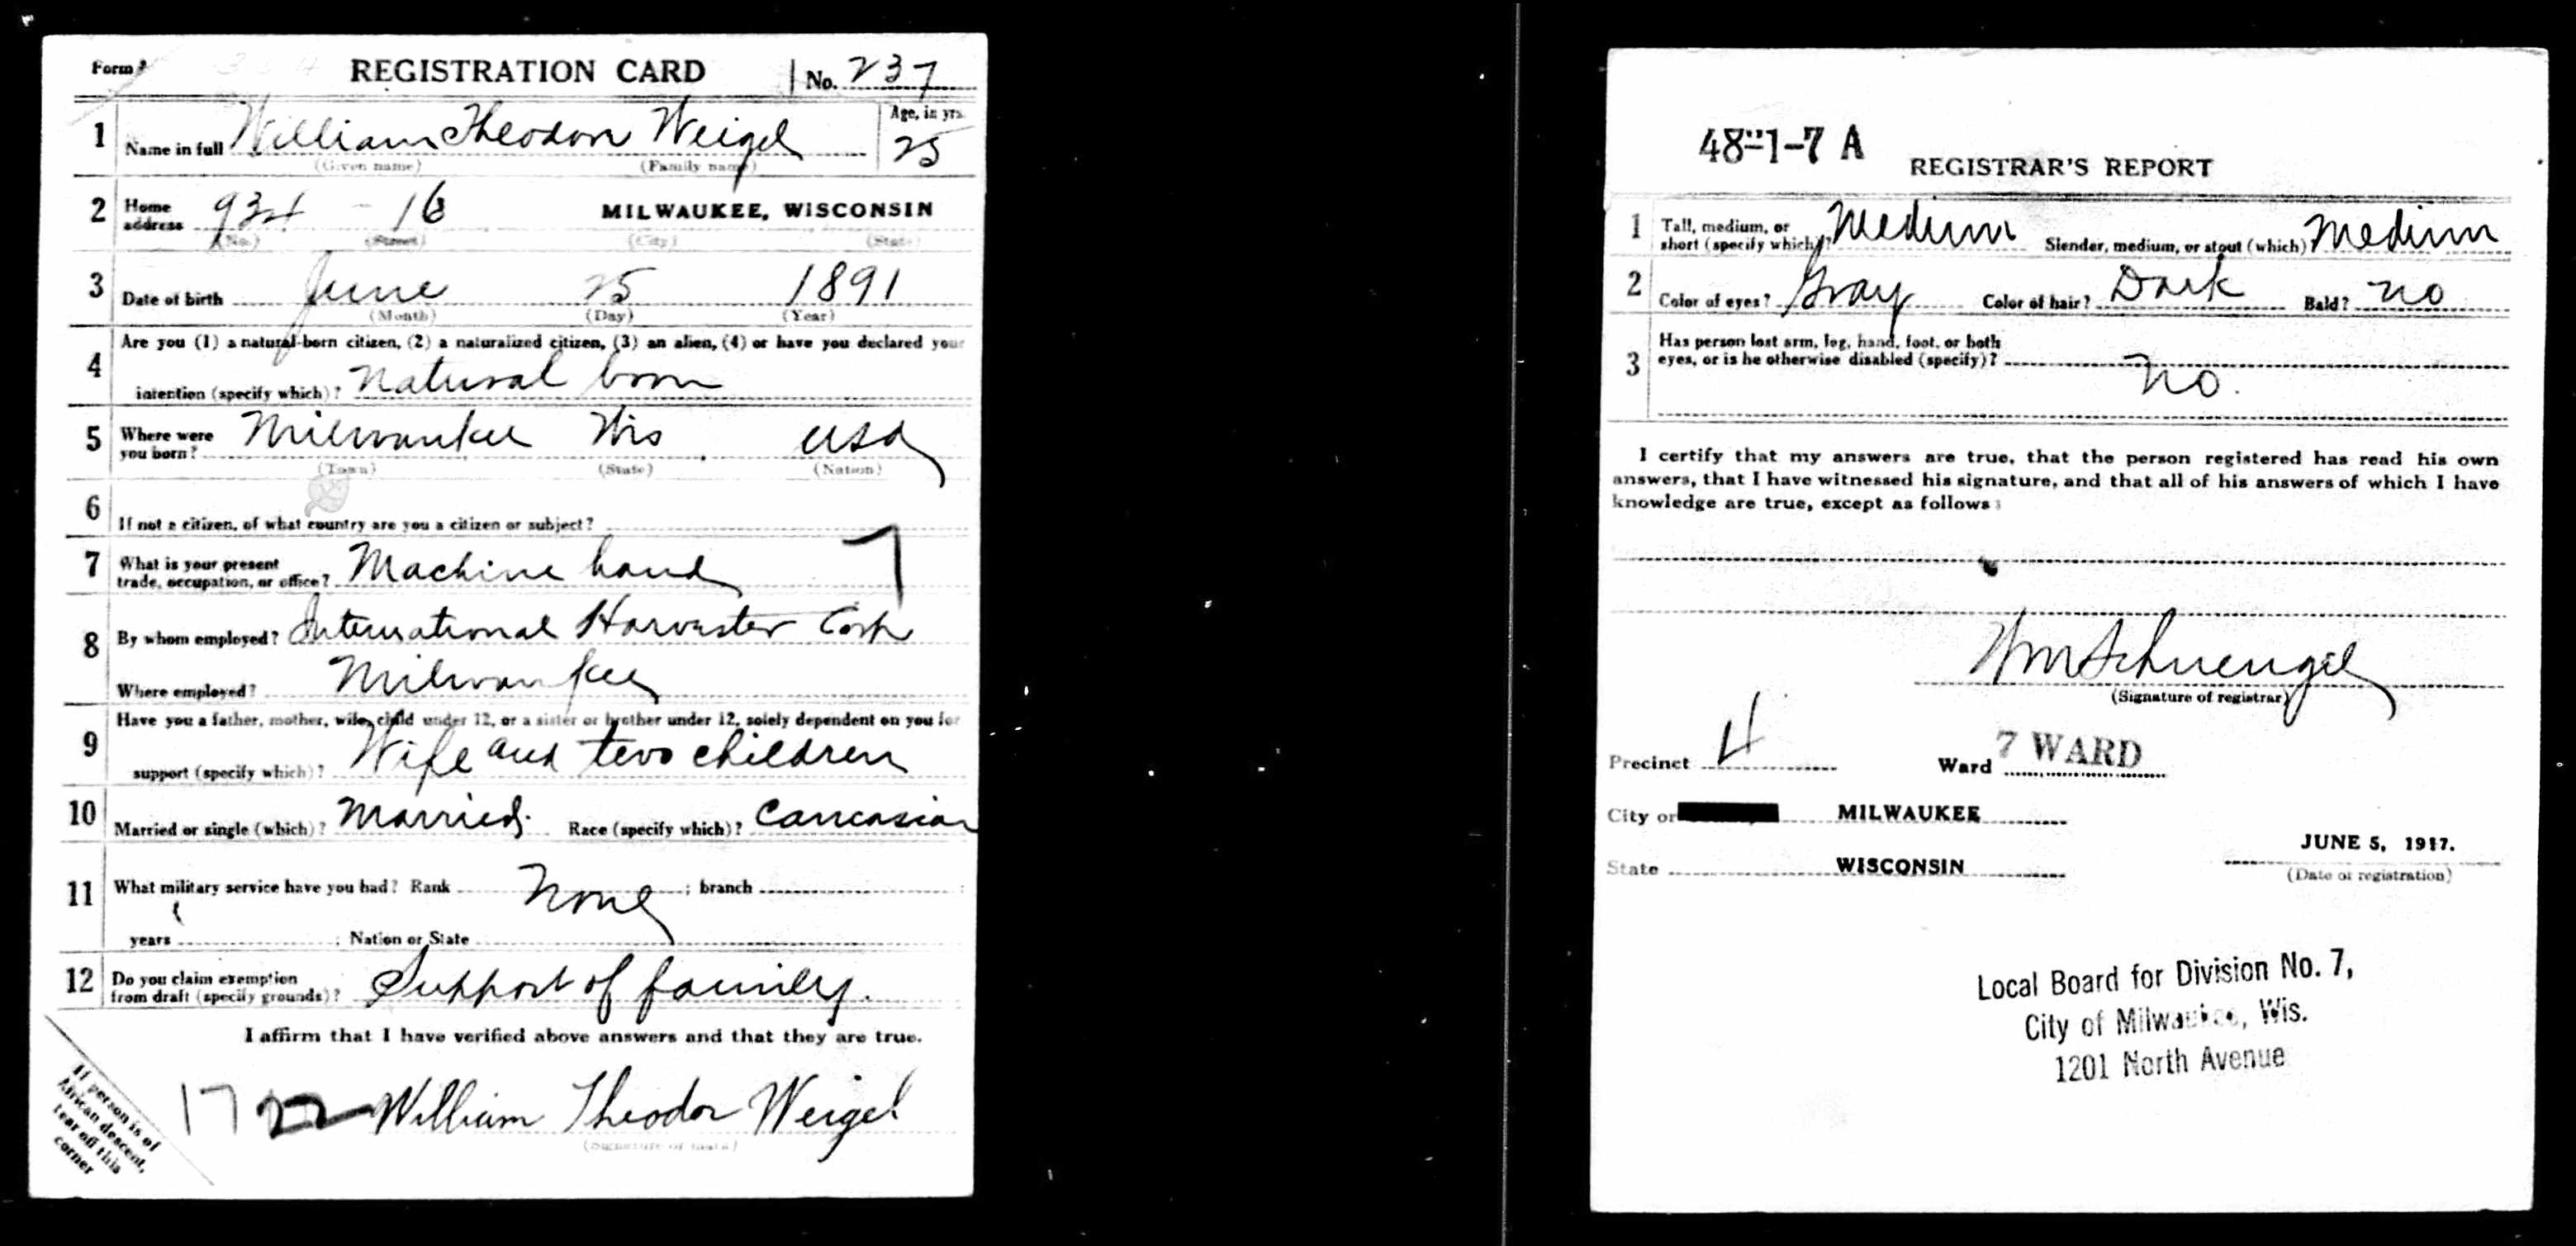 Form 1 REGISTRATION CARD No. 237
1 Name in full William Theodore Weigel Age, in yrs. 25
(Given name) (Family name)
2 Home address 934 - 16 MILWAUKEE, WISCONSIN
(No.) (Street) (City) (State)
3 Date of birth June 25 1891
(Month) (Day) (Year)
4 Are you (1) a natural-born citizen, (2) a naturalized citizen, (3) an alien, (4) or have you declared your
intention (specify which)? Natural born
5 Where were you born? Milwaukee Wis USA
(Town) (State) (Nation)
6 If not a citizen, of what country are you a citizen or subject?
7 What is your present trade, occupation, or office? Machine hand 7
8 By whom employed? International Harvester Corp
Where employed? Milwaukee
9 Have you a father, mother, wife, child under 12, or a sister or brother under 12, solely dependent on you for
support (specify which)? Wife and two children
10 Married or single (which)? Married. Race (specify which)? Caucasian
11 What military service have you had? Rank None ; branch
years ; Nation or State
12 Do you claim exemption from draft (specify grounds)? Support of family.
I affirm that I have verified above answers and that they are true.
17 22 William Theodor Weigel
(Signature or mark)
If person is of
African descent,
tear off this
corner
48-1-7 A
REGISTRAR'S REPORT
1 Tall, medium, or short (specify which)? Medium Slender, medium, or stout (which)? Medium
2 Color of eyes? Gray Color of hair? Dark Bald? No
3 Has person lost arm, leg, hand, foot, or both
eyes, or is he otherwise disabled (specify)? No.
I certify that my answers are true, that the person registered has read his own
answers, that I have witnessed his signature, and that all of his answers of which I have
knowledge are true, except as follows:
Wm
(Signature of registrar)
Precinct 4 Ward 7 WARD
City or MILWAUKEE
State WISCONSIN
JUNE 5, 1917.
(Date of registration)
Local Board for Division No. 7,
City of Milwaukee, Wis.
1201 North Avenue